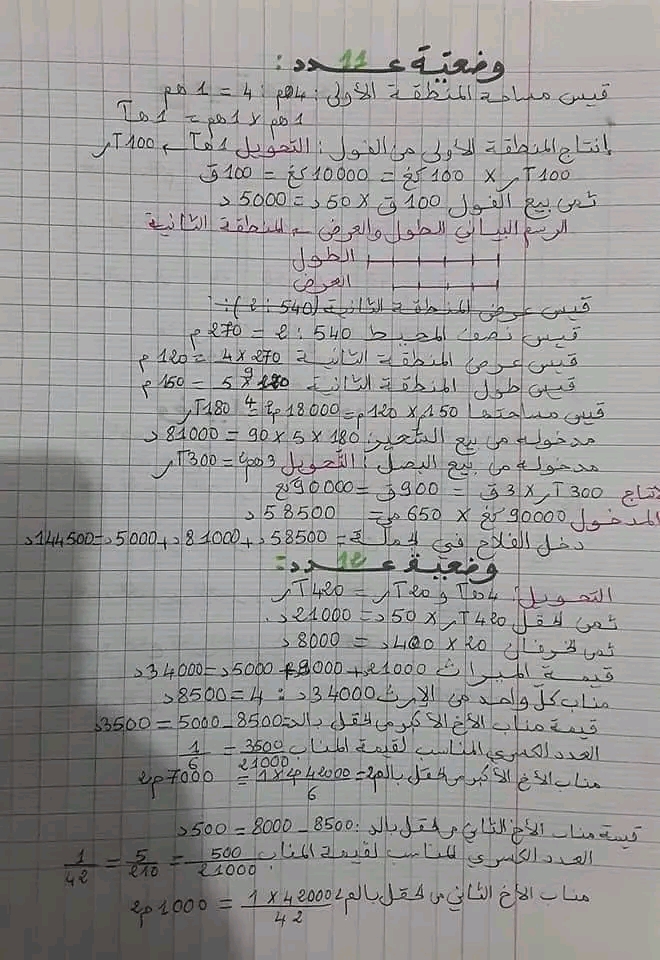 وضعية عدد 11:
قيس مساحة المنطقة الأولى: 4هم : 4 = 1 هم
1هم × 1هم = 1هآ
إنتاج المنطقة الأولى من الفول: التحويل 1هآ = 100آر
100آر × 100كغ = 10000كغ = 100ق
ثمن بيع الفول 100ق × 50د = 5000د
الرسم البياني الطول والعرض للمنطقة الثانية
الطول
العرض
قيس عرض المنطقة الثانية (540 : 2) :
قيس نصف المحيط 540 : 2 = 270م
قيس عرض المنطقة الثانية 4×270/9 = 120م
قيس طول المنطقة الثانية = 150م
قيس مساحتها 150 × 120م = 18000م2 = 180آر
مدخوله من بيع الشعير: 180 × 5 × 90 = 81000د
مدخوله من بيع البصل: التحويل 3هم2 = 300آر
الإنتاج 300آر × 3ق = 900ق = 90000كغ
المدخول 90000كغ × 650مي = 58500د
دخل الفلاح في الجملة = 58500د + 81000د + 5000د = 144500د
وضعية عدد 12:
التحويل: 4هآ و 20آر = 420آر
ثمن الحقل 420آر × 50د = 21000د
ثمن الخرفان 20 × 400د = 8000د
قيمة الميراث 21000د + 8000د + 5000د = 34000د
مناب كل واحد من الإرث 34000د : 4 = 8500د
قيمة مناب الأخ الأكبر من الحقل بالد = 8500 - 5000 = 3500د
العدد الكسري المناسب لقيمة المناب 3500/21000 = 1/6
مناب الأخ الأكبر من الحقل بالم2 = 1×42000م2/6 = 7000م2
قيمة مناب الأخ الثاني من الحقل بالد: 8500 - 8000 = 500د
العدد الكسري المناسب لقيمة المناب 500/21000 = 5/210 = 1/42
مناب الأخ الثاني من الحقل بالم2 1×42000/42 = 1000م2